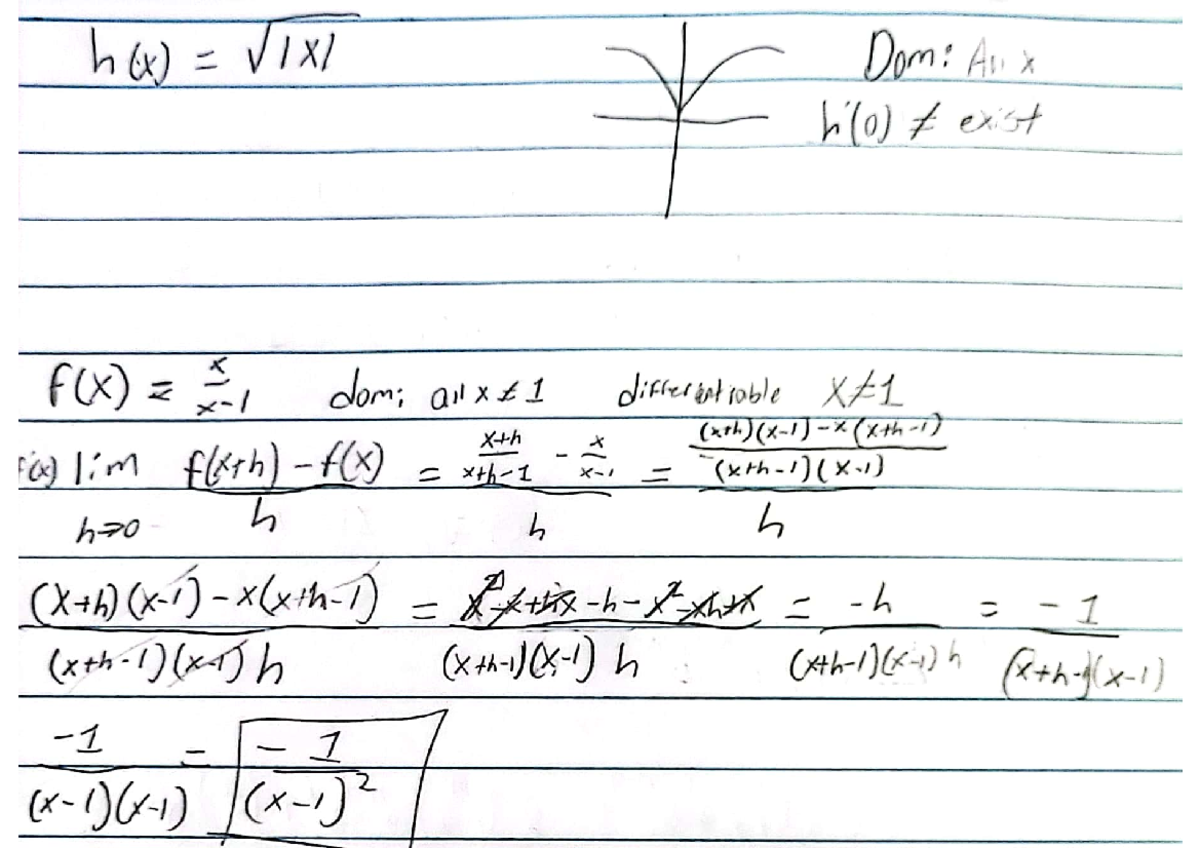 h(x) = √|x|    Dom: All x
h'(0) ≠ exist
f(x) = x/(x-1)    dom: all x ≠ 1    differentiable x≠1
f'(x) lim h→0 (f(x+h) - f(x))/h = ((x+h)/(x+h-1) - x/(x-1))/h = (((x+h)(x-1) - x(x+h-1))/((x+h-1)(x-1)))/h
((x+h)(x-1) - x(x+h-1))/((x+h-1)(x-1)h) = (x² - x + hx - h - x² - xh + x)/((x+h-1)(x-1)h) = -h/((x+h-1)(x-1)h) = -1/((x+h-1)(x-1))
-1/((x-1)(x-1)) = -1/(x-1)²